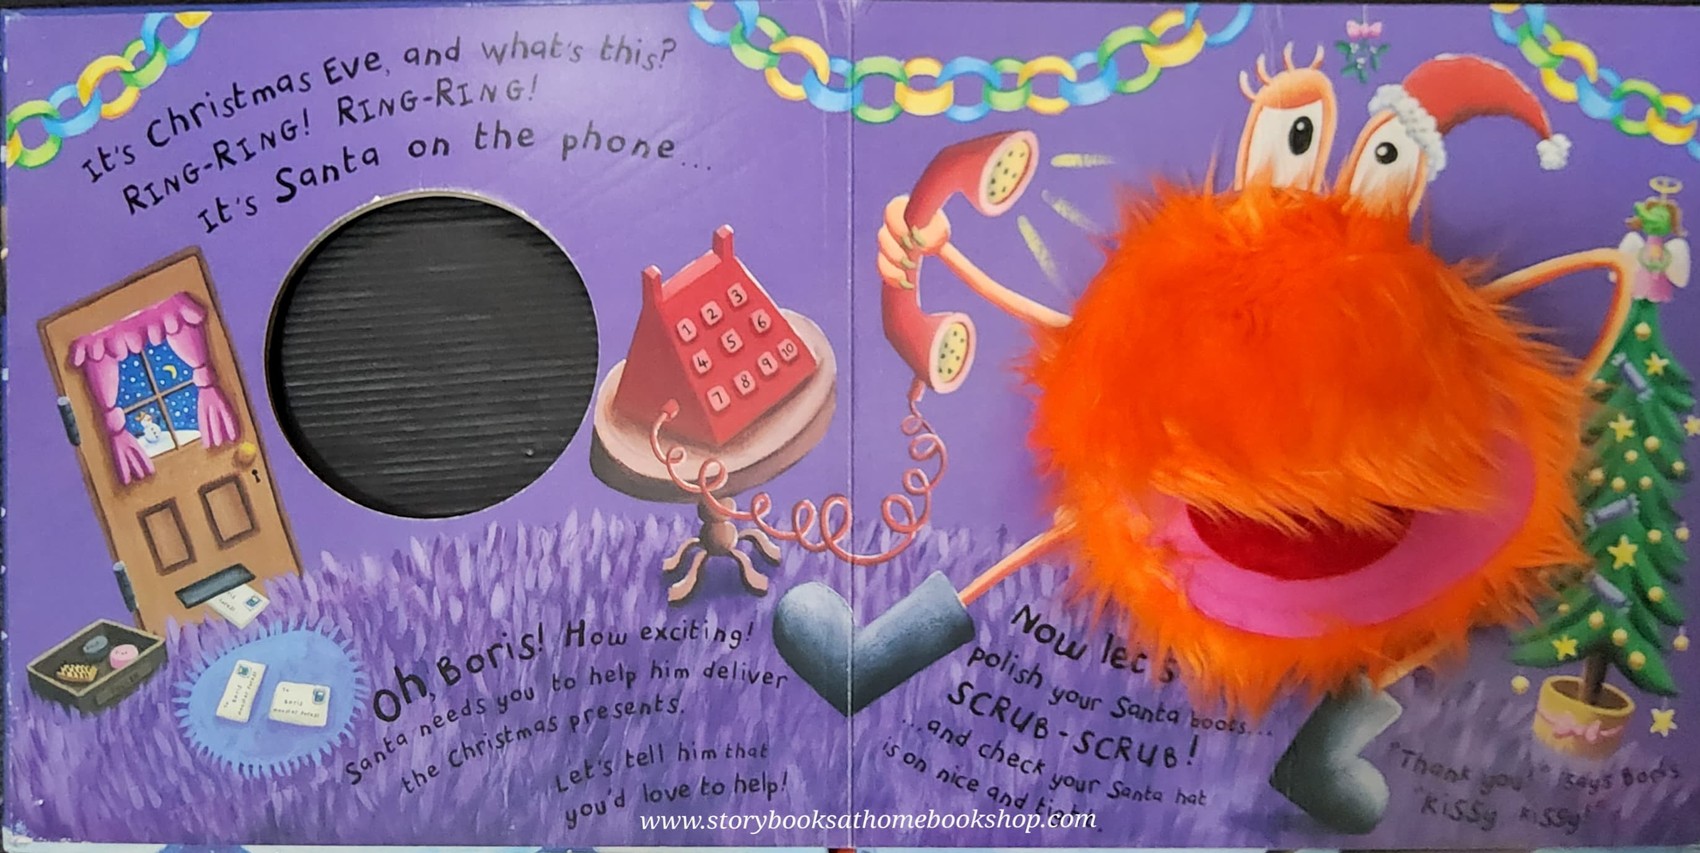 It's Christmas Eve, and what's this?
RING-RING! RING-RING!
It's Santa on the phone...
1 2 3
4 5 6
7 8 9 10
Oh, Boris! How exciting!
Santa needs you to help him deliver
the Christmas presents.
Let's tell him that
you'd love to help!
Now let's
polish your Santa boots...
SCRUB-SCRUB!
...and check your Santa hat
is on nice and
"Thank you!" says Boris
"Kissy kissy!"
www.storybooksathomebookshop.com